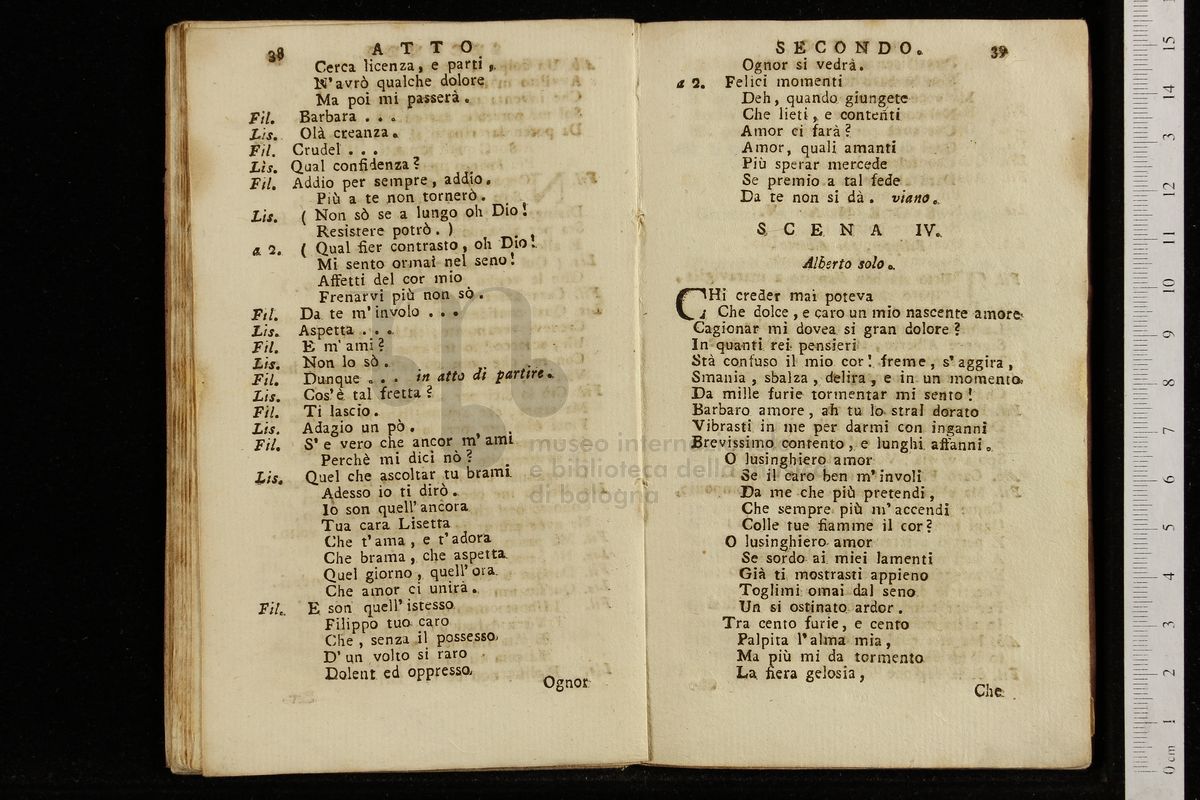 38 ATTO
Cerca licenza, e parti,
N'avrò qualche dolore
Ma poi mi passerà.
Fil. Barbara . . .
Lis. Olà creanza.
Fil. Crudel . . .
Lis. Qual confidenza?
Fil. Addio per sempre, addio.
Più a te non tornerò.
Lis. ( Non sò se a lungo oh Dio!
Resistere potrò. )
a 2. ( Qual fier contrasto, oh Dio!
Mi sento ormai nel seno!
Affetti del cor mio
Frenarvi più non sò.
Fil. Da te m'involo . . .
Lis. Aspetta . . .
Fil. E m'ami?
Lis. Non lo sò.
Fil. Dunque . . . in atto di partire.
Lis. Cos'è tal fretta?
Fil. Ti lascio.
Lis. Adagio un pò.
Fil. S'e vero che ancor m'ami
Perchè mi dici nò?
Lis. Quel che ascoltar tu brami
Adesso io ti dirò.
Io son quell'ancora
Tua cara Lisetta
Che t'ama, e t'adora
Che brama, che aspetta
Quel giorno, quell'ora
Che amor ci unirà.
Fil. E son quell'istesso
Filippo tuo caro
Che, senza il possesso
D'un volto si raro
Dolent ed oppresso
Ognor
SECONDO. 39
Ognor si vedrà.
a 2. Felici momenti
Deh, quando giungete
Che lieti, e contenti
Amor ci farà?
Amor, quali amanti
Più sperar mercede
Se premio a tal fede
Da te non si dà. viano.
SCENA IV.
Alberto solo.
CHi creder mai poteva
Che dolce, e caro un mio nascente amore
Cagionar mi dovea si gran dolore?
In quanti rei pensieri
Stà confuso il mio cor! freme, s'aggira,
Smania, sbalza, delira, e in un momento
Da mille furie tormentar mi sento!
Barbaro amore, ah tu lo stral dorato
Vibrasti in me per darmi con inganni
Brevissimo contento, e lunghi affanni.
O lusinghiero amor
Se il caro ben m'involi
Da me che più pretendi,
Che sempre più m'accendi
Colle tue fiamme il cor?
O lusinghiero amor
Se sordo ai miei lamenti
Già ti mostrasti appieno
Toglimi omai dal seno
Un si ostinato ardor.
Tra cento furie, e cento
Palpita l'alma mia,
Ma più mi da tormento
La fiera gelosia,
Che
museo
e biblioteca della
di bologna
0 cm 1 2 3 4 5 6 7 8 9 10 11 12 13 14 15